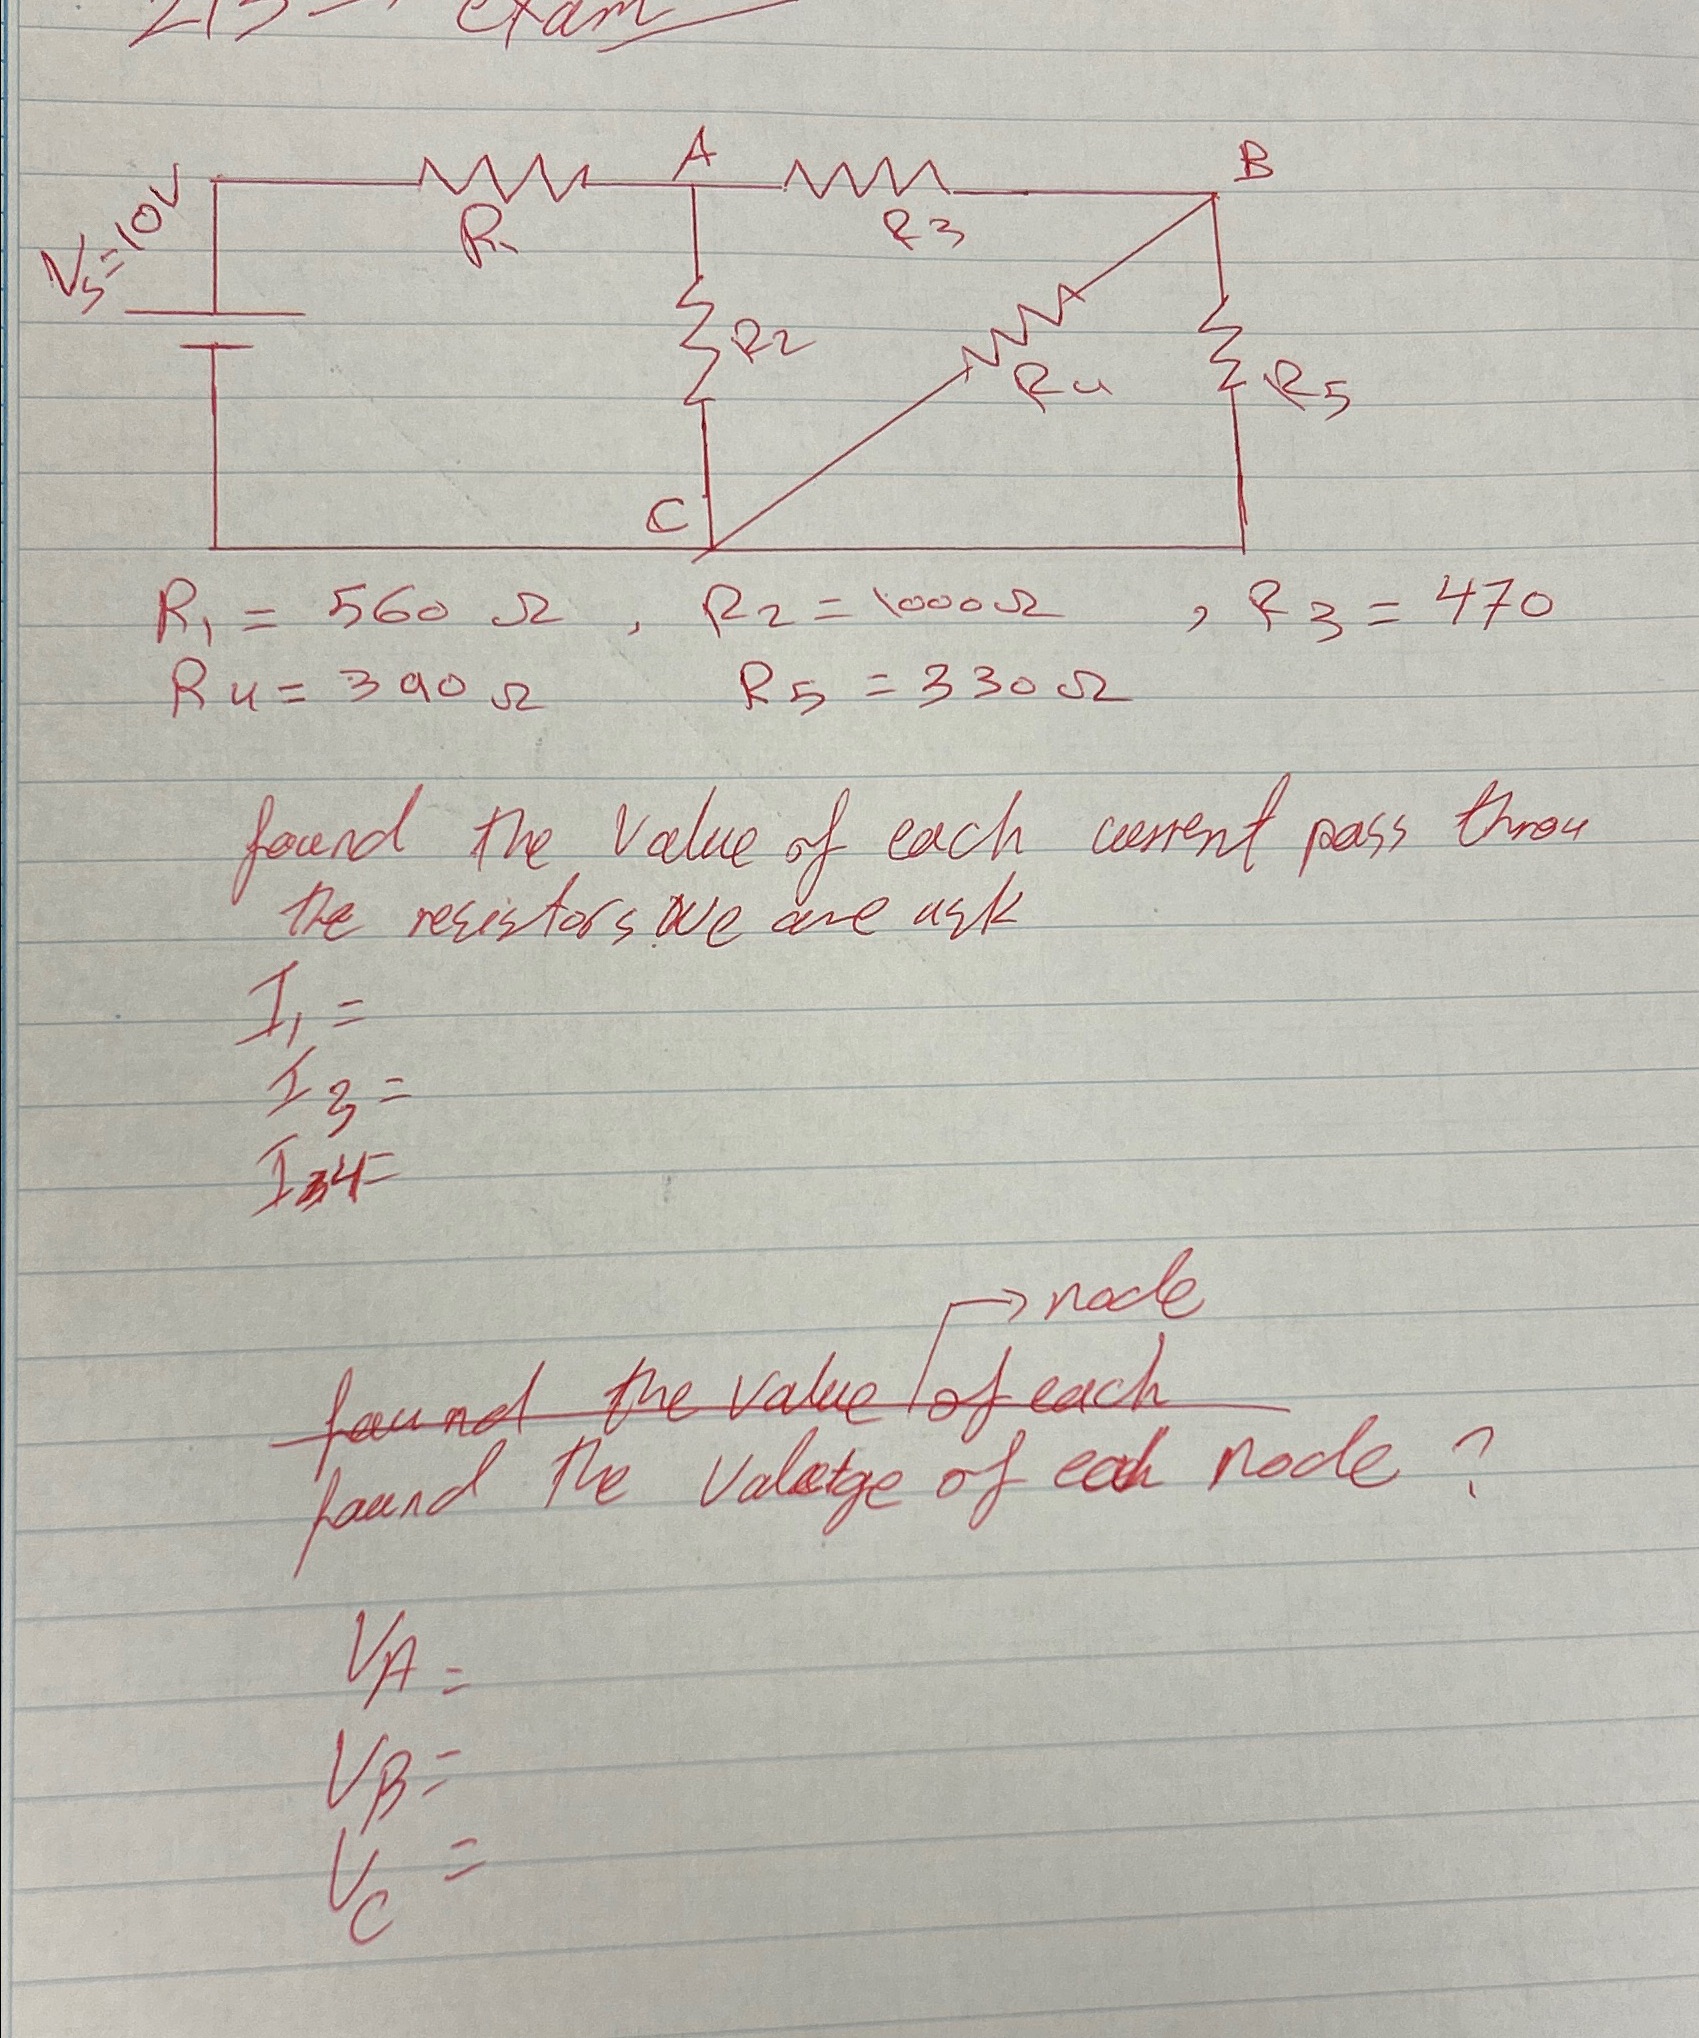 exam
A
B
Vs=10V
R1
R3
R2
R4
R5
C
R1 = 560 Ω , R2 = 1000Ω , R3 = 470
R4 = 390 Ω R5 = 330 Ω
found the value of each current pass throu
the resistors we are ask
I1 =
I3 =
I4=
node
found the value of each
found the valatge of each node ?
VA =
VB =
VC =